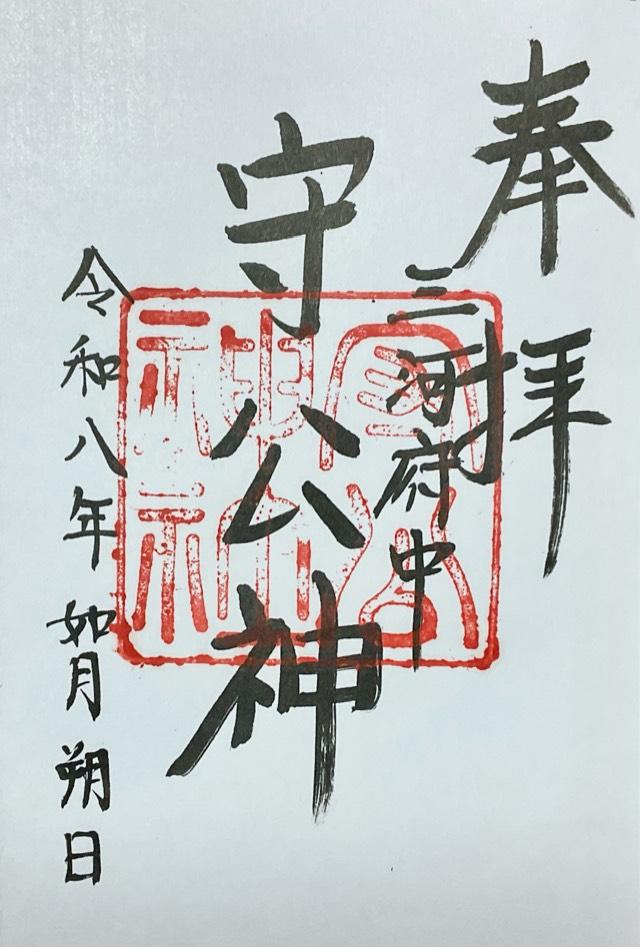 奉拝
三河府中
守公神
令和八年如月朔日
守公神社